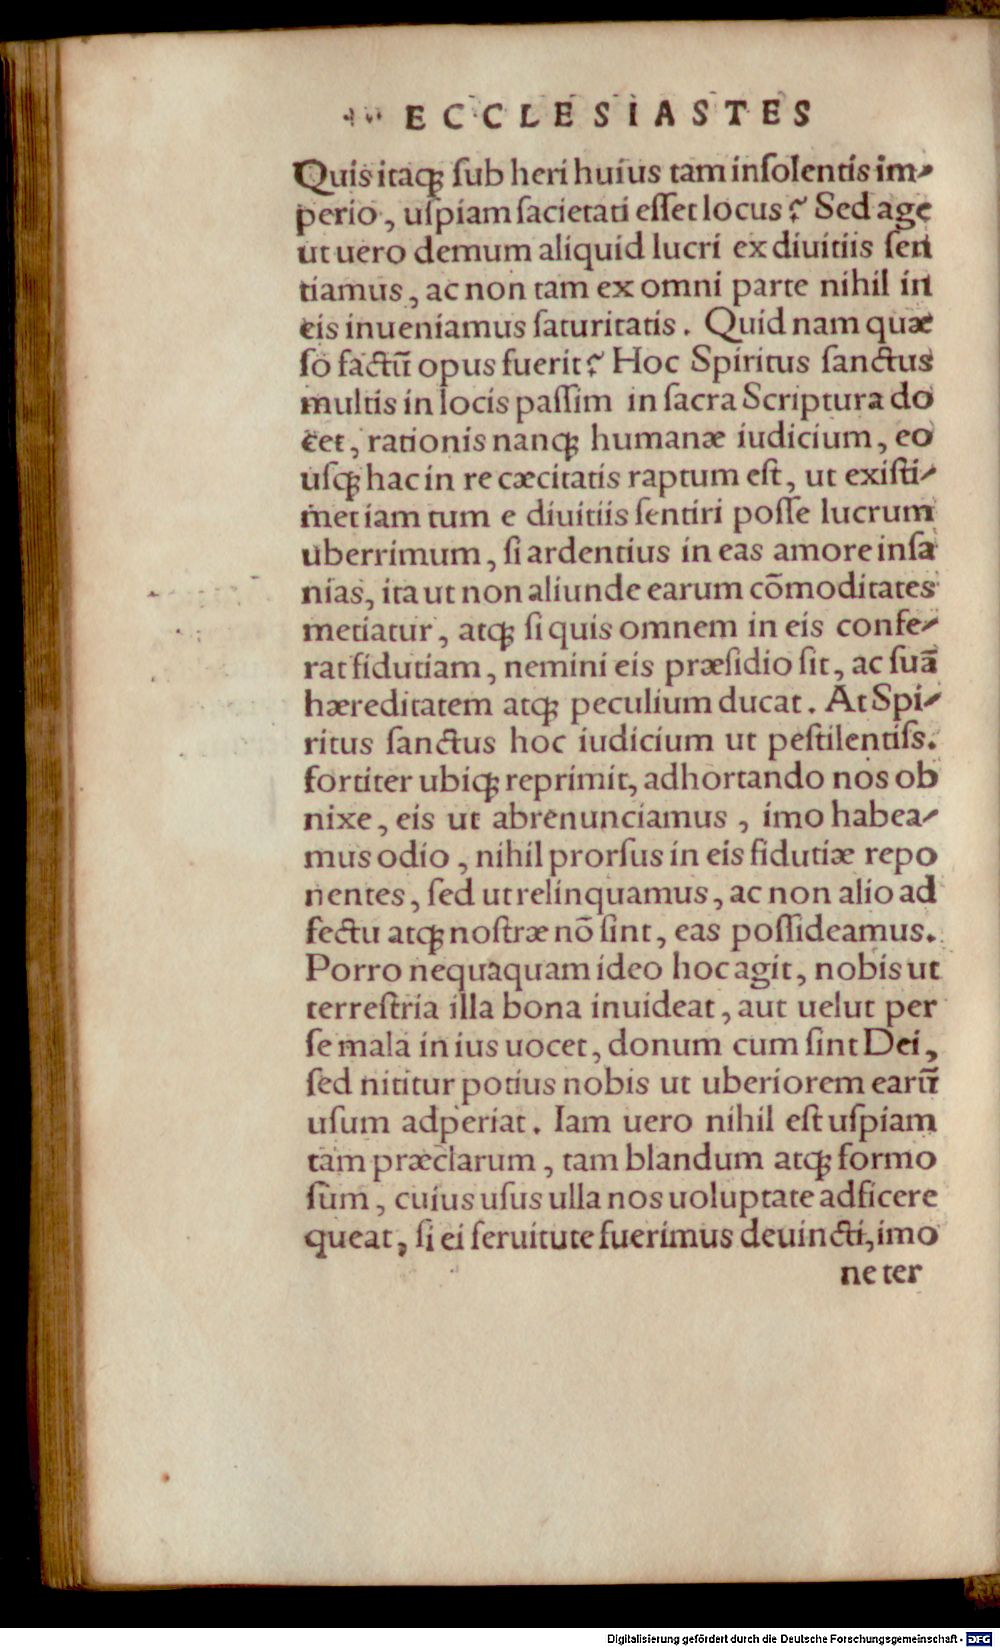 ECCLESIASTES
Quis itaqꝫ ſub heri huius tam inſolentis im-
perio, uſpiam ſacietati eſſet locus? Sed age
ut uero demum aliquid lucri ex diuitiis ſen
tiamus, ac non tam ex omni parte nihil in
eis inueniamus ſaturitatis. Quid nam quæ
ſo factū opus fuerit? Hoc Spiritus ſanctus
multis in locis paſſim in ſacra Scriptura do
cet, rationis nanqꝫ humanæ iudicium, eo
uſqꝫ hac in re cæcitatis raptum eſt, ut exiſti-
met iam tum e diuitiis ſentiri poſſe lucrum
uberrimum, ſi ardentius in eas amore inſa
nias, ita ut non aliunde earum cōmoditates
metiatur, atqꝫ ſi quis omnem in eis confe-
rat fidutiam, nemini eis præſidio ſit, ac ſuā
hæreditatem atqꝫ peculium ducat. At Spi-
ritus ſanctus hoc iudicium ut peſtilentiſs.
fortiter ubiqꝫ reprimit, adhortando nos ob
nixe, eis ut abrenunciamus, imo habea-
mus odio, nihil prorſus in eis fidutiæ repo
nentes, ſed ut relinquamus, ac non alio ad
fectu atqꝫ noſtræ nō ſint, eas poſſideamus.
Porro nequaquam ideo hoc agit, nobis ut
terreſtria illa bona inuideat, aut uelut per
ſe mala in ius uocet, donum cum ſint Dei,
ſed nititur potius nobis ut uberiorem earū
uſum adperiat. Iam uero nihil eſt uſpiam
tam præclarum, tam blandum atqꝫ formo
ſum, cuius uſus ulla nos uoluptate adficere
queat, ſi ei ſeruitute fuerimus deuincti, imo
ne ter
Digitalisierung gefördert durch die Deutsche Forschungsgemeinschaft - DFG